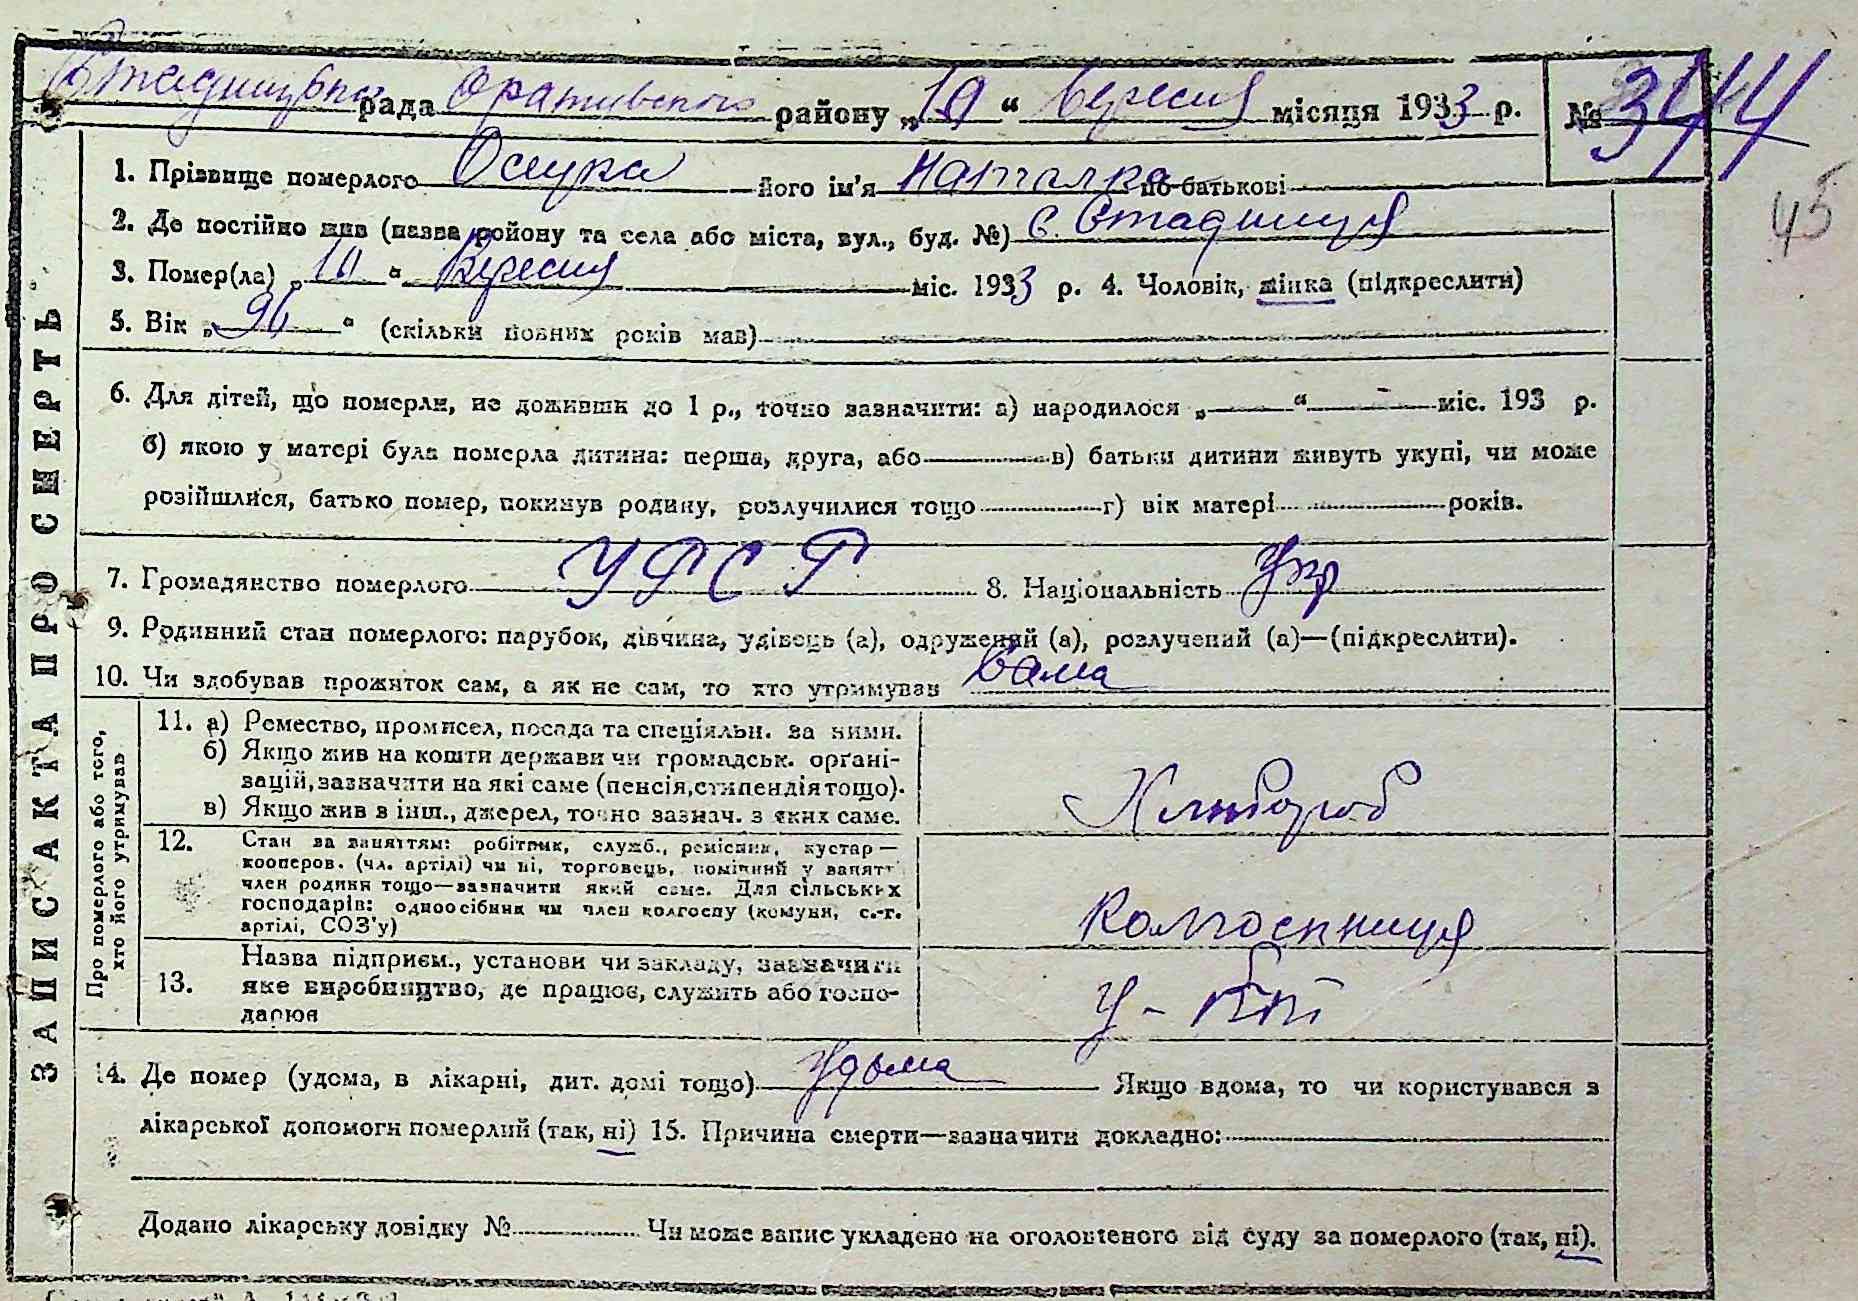 Стадницька рада Оратівського району „10“ Вересня місяця 1933 р. № 344
45
1. Прізвище померлого Осиука його ім'я Наталка по батькові
2. Де постійно жив (назва району та села або міста, вул., буд. №) с. Стадниця
3. Помер(ла) „10“ Вересня міс. 1933 р. 4. Чоловік, жінка (підкреслити)
5. Вік „96“ (скільки повних років мав)
6. Для дітей, що померли, не доживши до 1 р., точно зазначити: а) народилося „ “ міс. 193 р.
б) якою у матері була померла дитина: перша, друга, або в) батьки дитини живуть укупі, чи може
розійшлися, батько помер, покинув родину, розлучилися тощо г) вік матері років.
7. Громадянство померлого УРСР 8. Національність Укр
9. Родинний стан померлого: парубок, дівчина, удівець (а), одружений (а), розлучений (а)—(підкреслити).
10. Чи здобував прожиток сам, а як не сам, то хто утримував Сама
ЗАПИС АКТА ПРО СМЕРТЬ
Про померлого або того,
хто його утримував
11. а) Ремество, промисел, посада та спеціяльн. за ними.
б) Якщо жив на кошти держави чи громадськ. орґані-
зацій, зазначити на які саме (пенсія, стипендія тощо).
в) Якщо жив в інш., джерел, точно зазнач. з яких саме.
Хлібороб
12. Стан за заняттям: робітник, служб., ремісник, кустар—
кооперов. (чл. артілі) чи ні, торговець, помічний у занятт
член родини тощо—зазначити який саме. Для сільських
господарів: одноосібник чи член колгоспу (комуни, с.-г.
артілі, СОЗ'у)
Колгоспниця
13. Назва підприєм., установи чи закладу, зазначити
яке виробництво, де працює, служить або госпо-
дарює
14. Де помер (удома, в лікарні, дит. домі тощо) Удома Якщо вдома, то чи користувався з
лікарської допомоги померлий (так, ні) 15. Причина смерти—зазначити докладно:
Додано лікарську довідку № Чи може запис укладено на оголошеного від суду за померлого (так, ні).